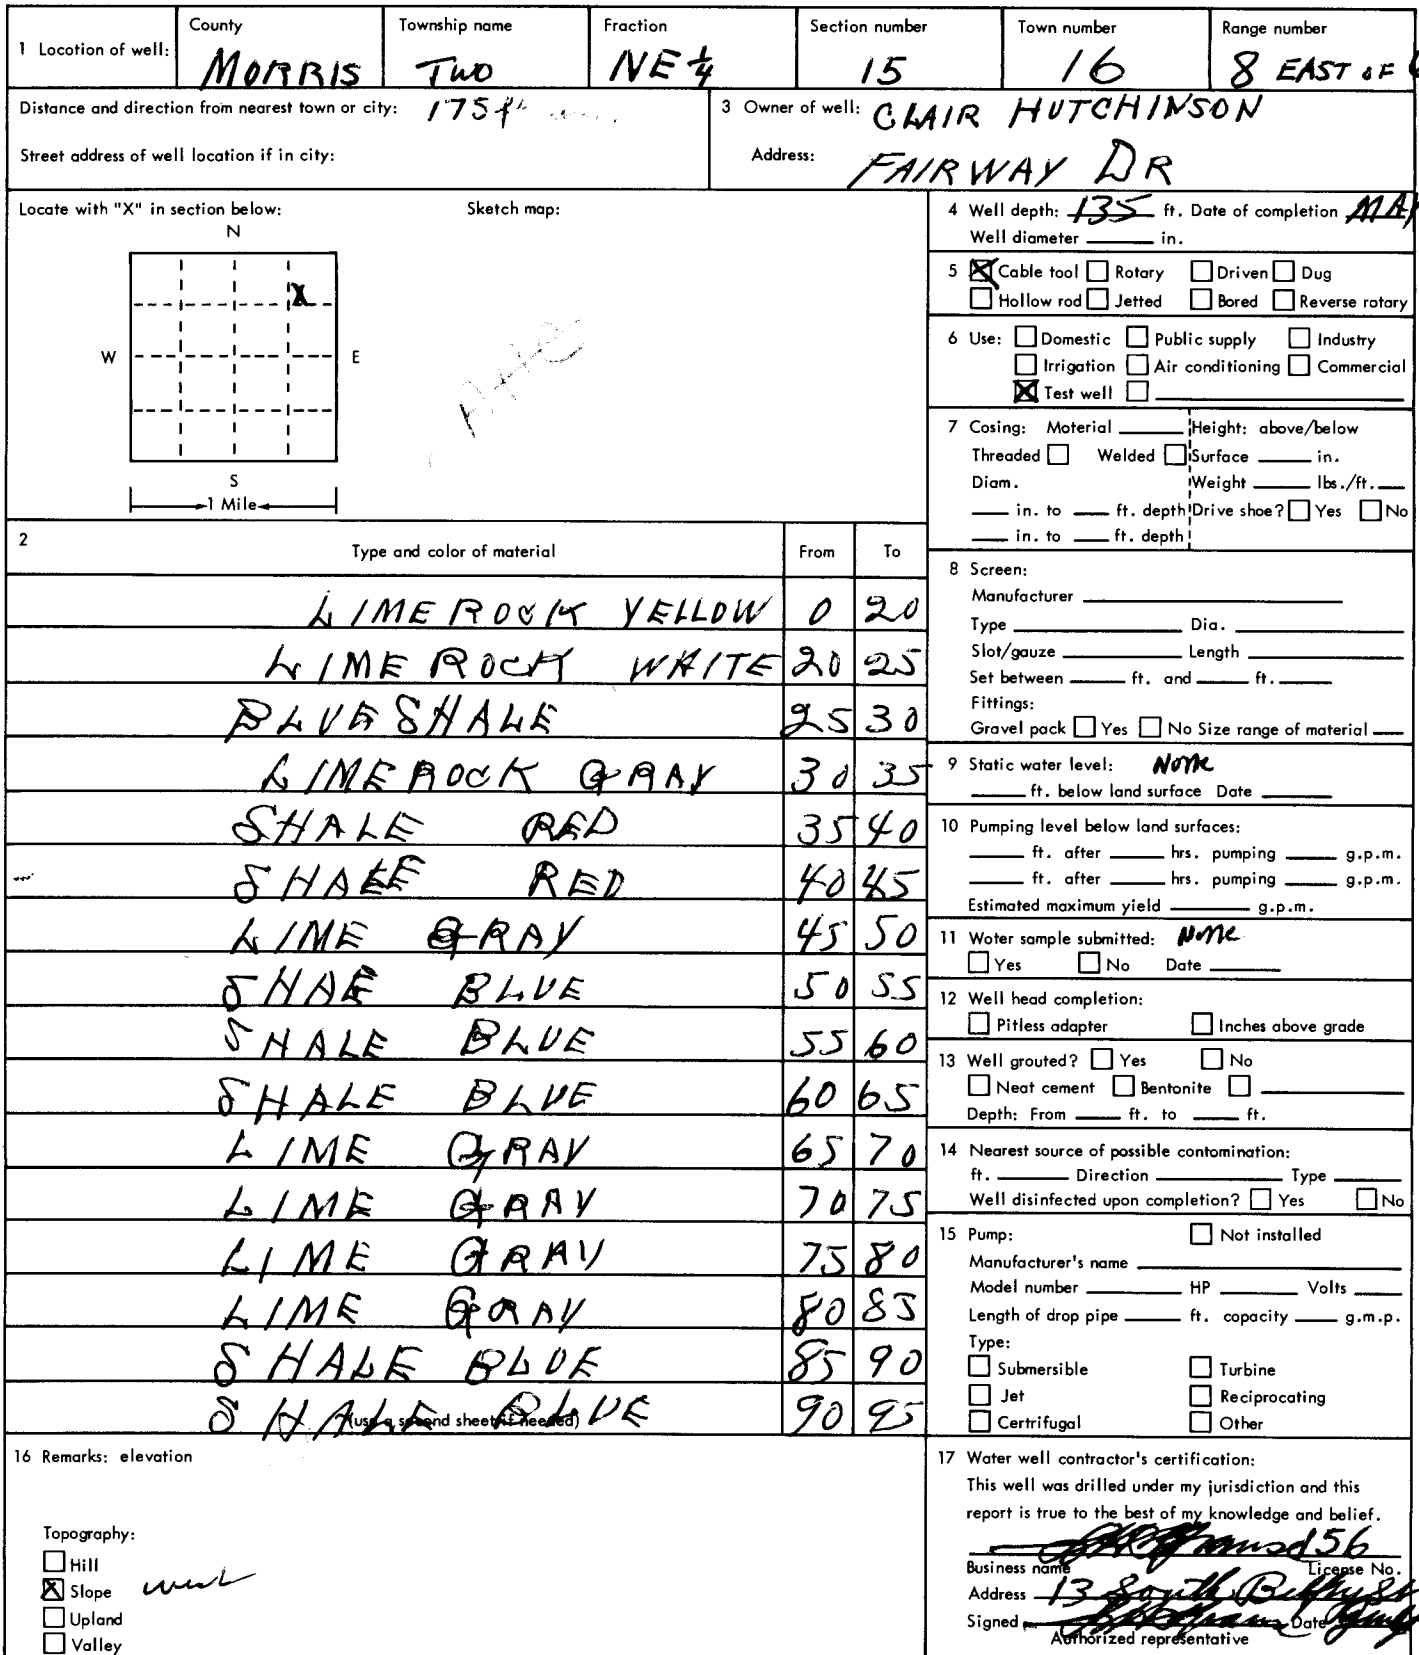 1 Location of well: County Township name Fraction Section number Town number Range number
MORRIS TWO NE 1/4 15 16 8 EAST OF
Distance and direction from nearest town or city: 175ft
Street address of well location if in city:
3 Owner of well: CLAIR HUTCHINSON
Address: FAIRWAY DR
Locate with "X" in section below: Sketch map:
N
X
W E
S
1 Mile
2 Type and color of material From To
LIMEROCK YELLOW 0 20
LIMEROCK WAITE 20 25
BLUE SHALE 25 30
LIMEROCK GRAY 30 35
SHALE RED 35 40
SHALE RED 40 45
LIME GRAY 45 50
SHAE BLUE 50 55
SHALE BLUE 55 60
SHALE BLUE 60 65
LIME GRAY 65 70
LIME GRAY 70 75
LIME GRAY 75 80
LIME GRAY 80 85
SHALE BLUE 85 90
SHALE BLUE 90 95
(use a second sheet if needed)
16 Remarks: elevation
Topography:
Hill
X Slope west
Upland
Valley
4 Well depth: 135 ft. Date of completion MAY
Well diameter ____ in.
5 X Cable tool Rotary Driven Dug
Hollow rod Jetted Bored Reverse rotary
6 Use: Domestic Public supply Industry
Irrigation Air conditioning Commercial
X Test well
7 Cosing: Moterial ____ Height: above/below
Threaded Welded Surface ____ in.
Diam. Weight ____ lbs./ft. ____
____ in. to ____ ft. depth Drive shoe? Yes No
____ in. to ____ ft. depth
8 Screen:
Manufacturer ____
Type ____ Dia. ____
Slot/gauze ____ Length ____
Set between ____ ft. and ____ ft. ____
Fittings:
Gravel pack Yes No Size range of material ____
9 Static water level: None
____ ft. below land surface Date ____
10 Pumping level below land surfaces:
____ ft. after ____ hrs. pumping ____ g.p.m.
____ ft. after ____ hrs. pumping ____ g.p.m.
Estimated maximum yield ____ g.p.m.
11 Woter sample submitted: None
Yes No Date ____
12 Well head completion:
Pitless adapter Inches above grade
13 Well grouted? Yes No
Neat cement Bentonite ____
Depth: From ____ ft. to ____ ft.
14 Nearest source of possible contomination:
ft. ____ Direction ____ Type ____
Well disinfected upon completion? Yes No
15 Pump: Not installed
Manufacturer's name ____
Model number ____ HP ____ Volts ____
Length of drop pipe ____ ft. capacity ____ g.m.p.
Type:
Submersible Turbine
Jet Reciprocating
Certrifugal Other
17 Water well contractor's certification:
This well was drilled under my jurisdiction and this
report is true to the best of my knowledge and belief.
156
Business name License No.
Address 13 South
Signed Date
Authorized representative